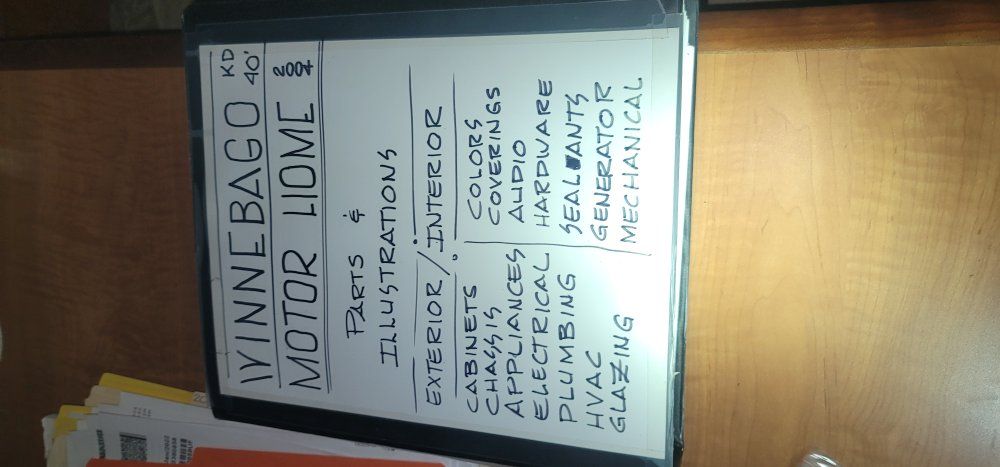 WINNEBAGO KD 40'
MOTOR HOME 2004
PARTS &
ILLUSTRATIONS
EXTERIOR / INTERIOR
CABINETS
CHASSIS
APPLIANCES
ELECTRICAL
PLUMBING
HVAC
GLAZING
COLORS
COVERINGS
AUDIO
HARDWARE
SEALANTS
GENERATOR
MECHANICAL